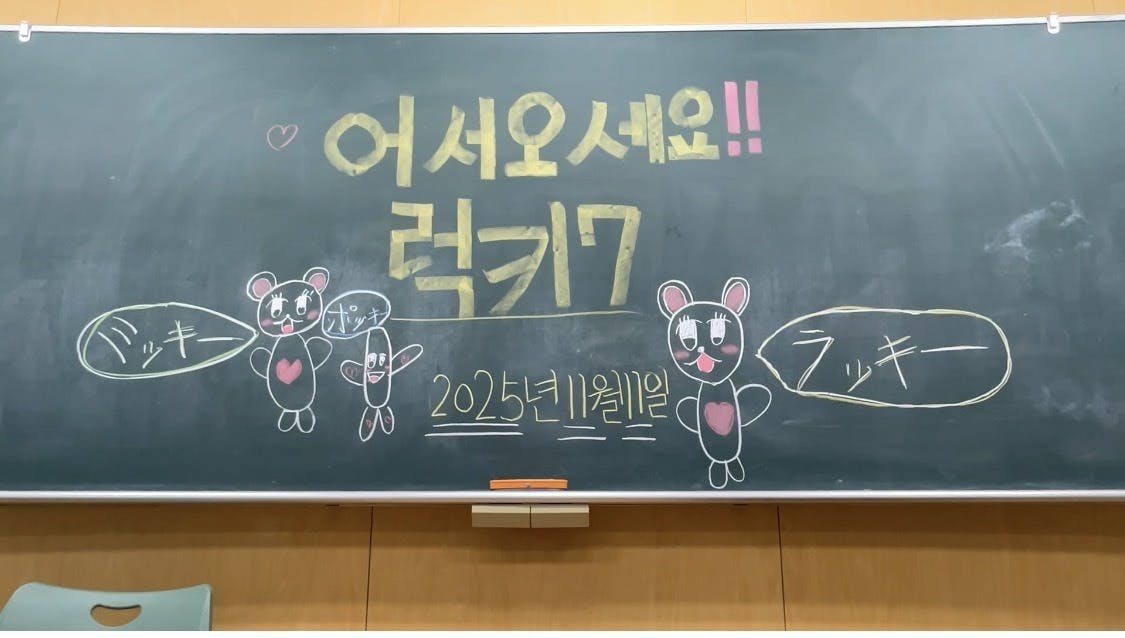 어서오세요!!
럭키7
ミッキー
ポッキー
ラッキー
2025년 11월 11일